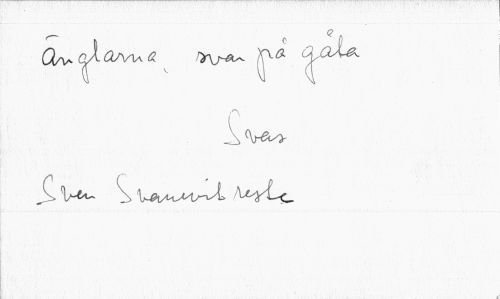 Änglarna, svar på gåta
Svar
Sven Svanevit reste